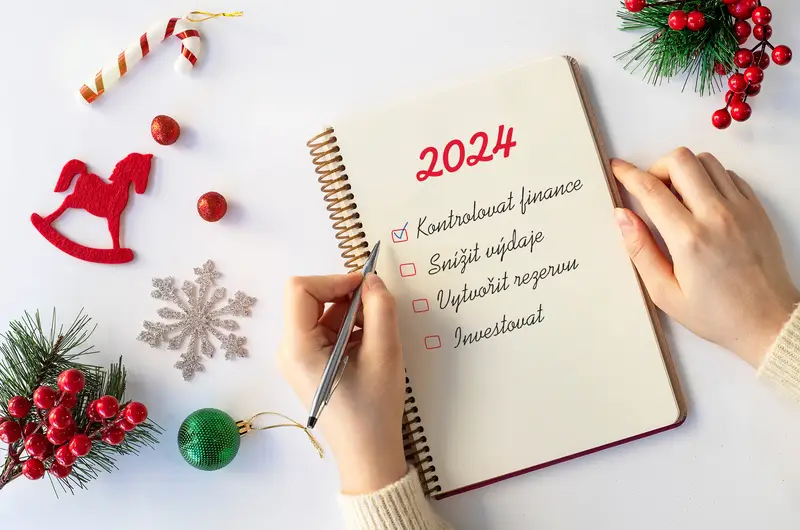 2024
Kontrolovat finance
Snížit výdaje
Vytvořit rezervu
Investovat